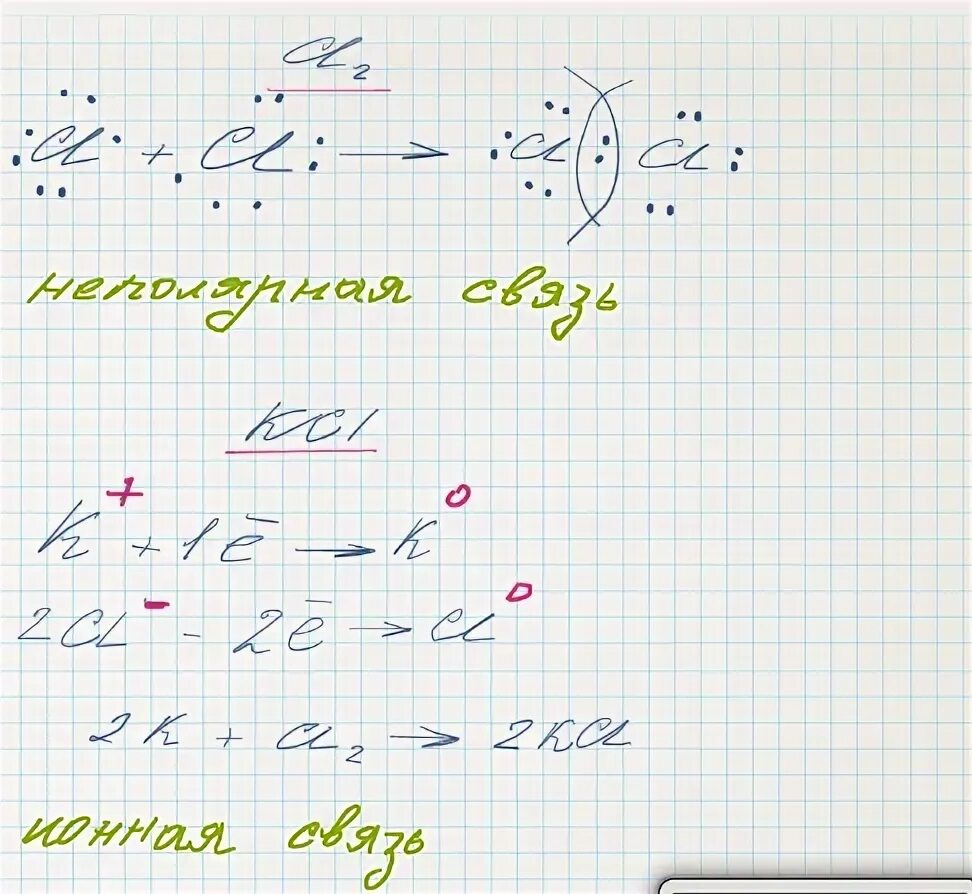 Cl₂
Cl + Cl → Cl Cl
неполярная связь
KCl
K⁺ + 1ē → K⁰
2Cl⁻ - 2ē → Cl⁰
2K + Cl₂ → 2KCl
ионная связь